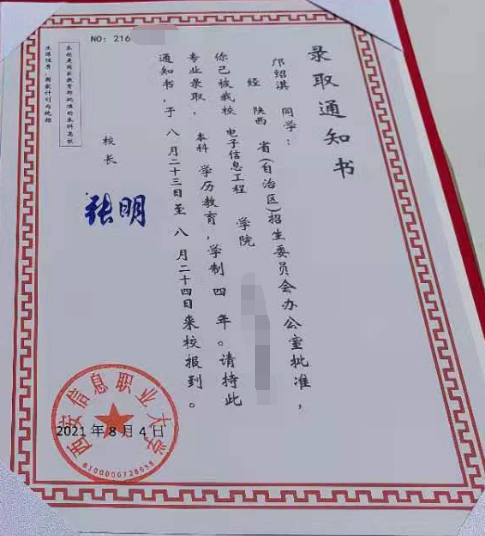 NO: 216
录取通知书
绍淇 同学：
经 陕西 省(自治区)招生委员会办公室批准，
你已被我校 电子信息工程 学院
专业录取，本科 学历教育，学制 四 年。请持此
通知书，于 八月二十三日至 八月二十四日来校报到。
校长
张明
本校是国家教育部批准的本科高校
生源性质：国家计划内统招
西安信息职业大学
2021年8月4日